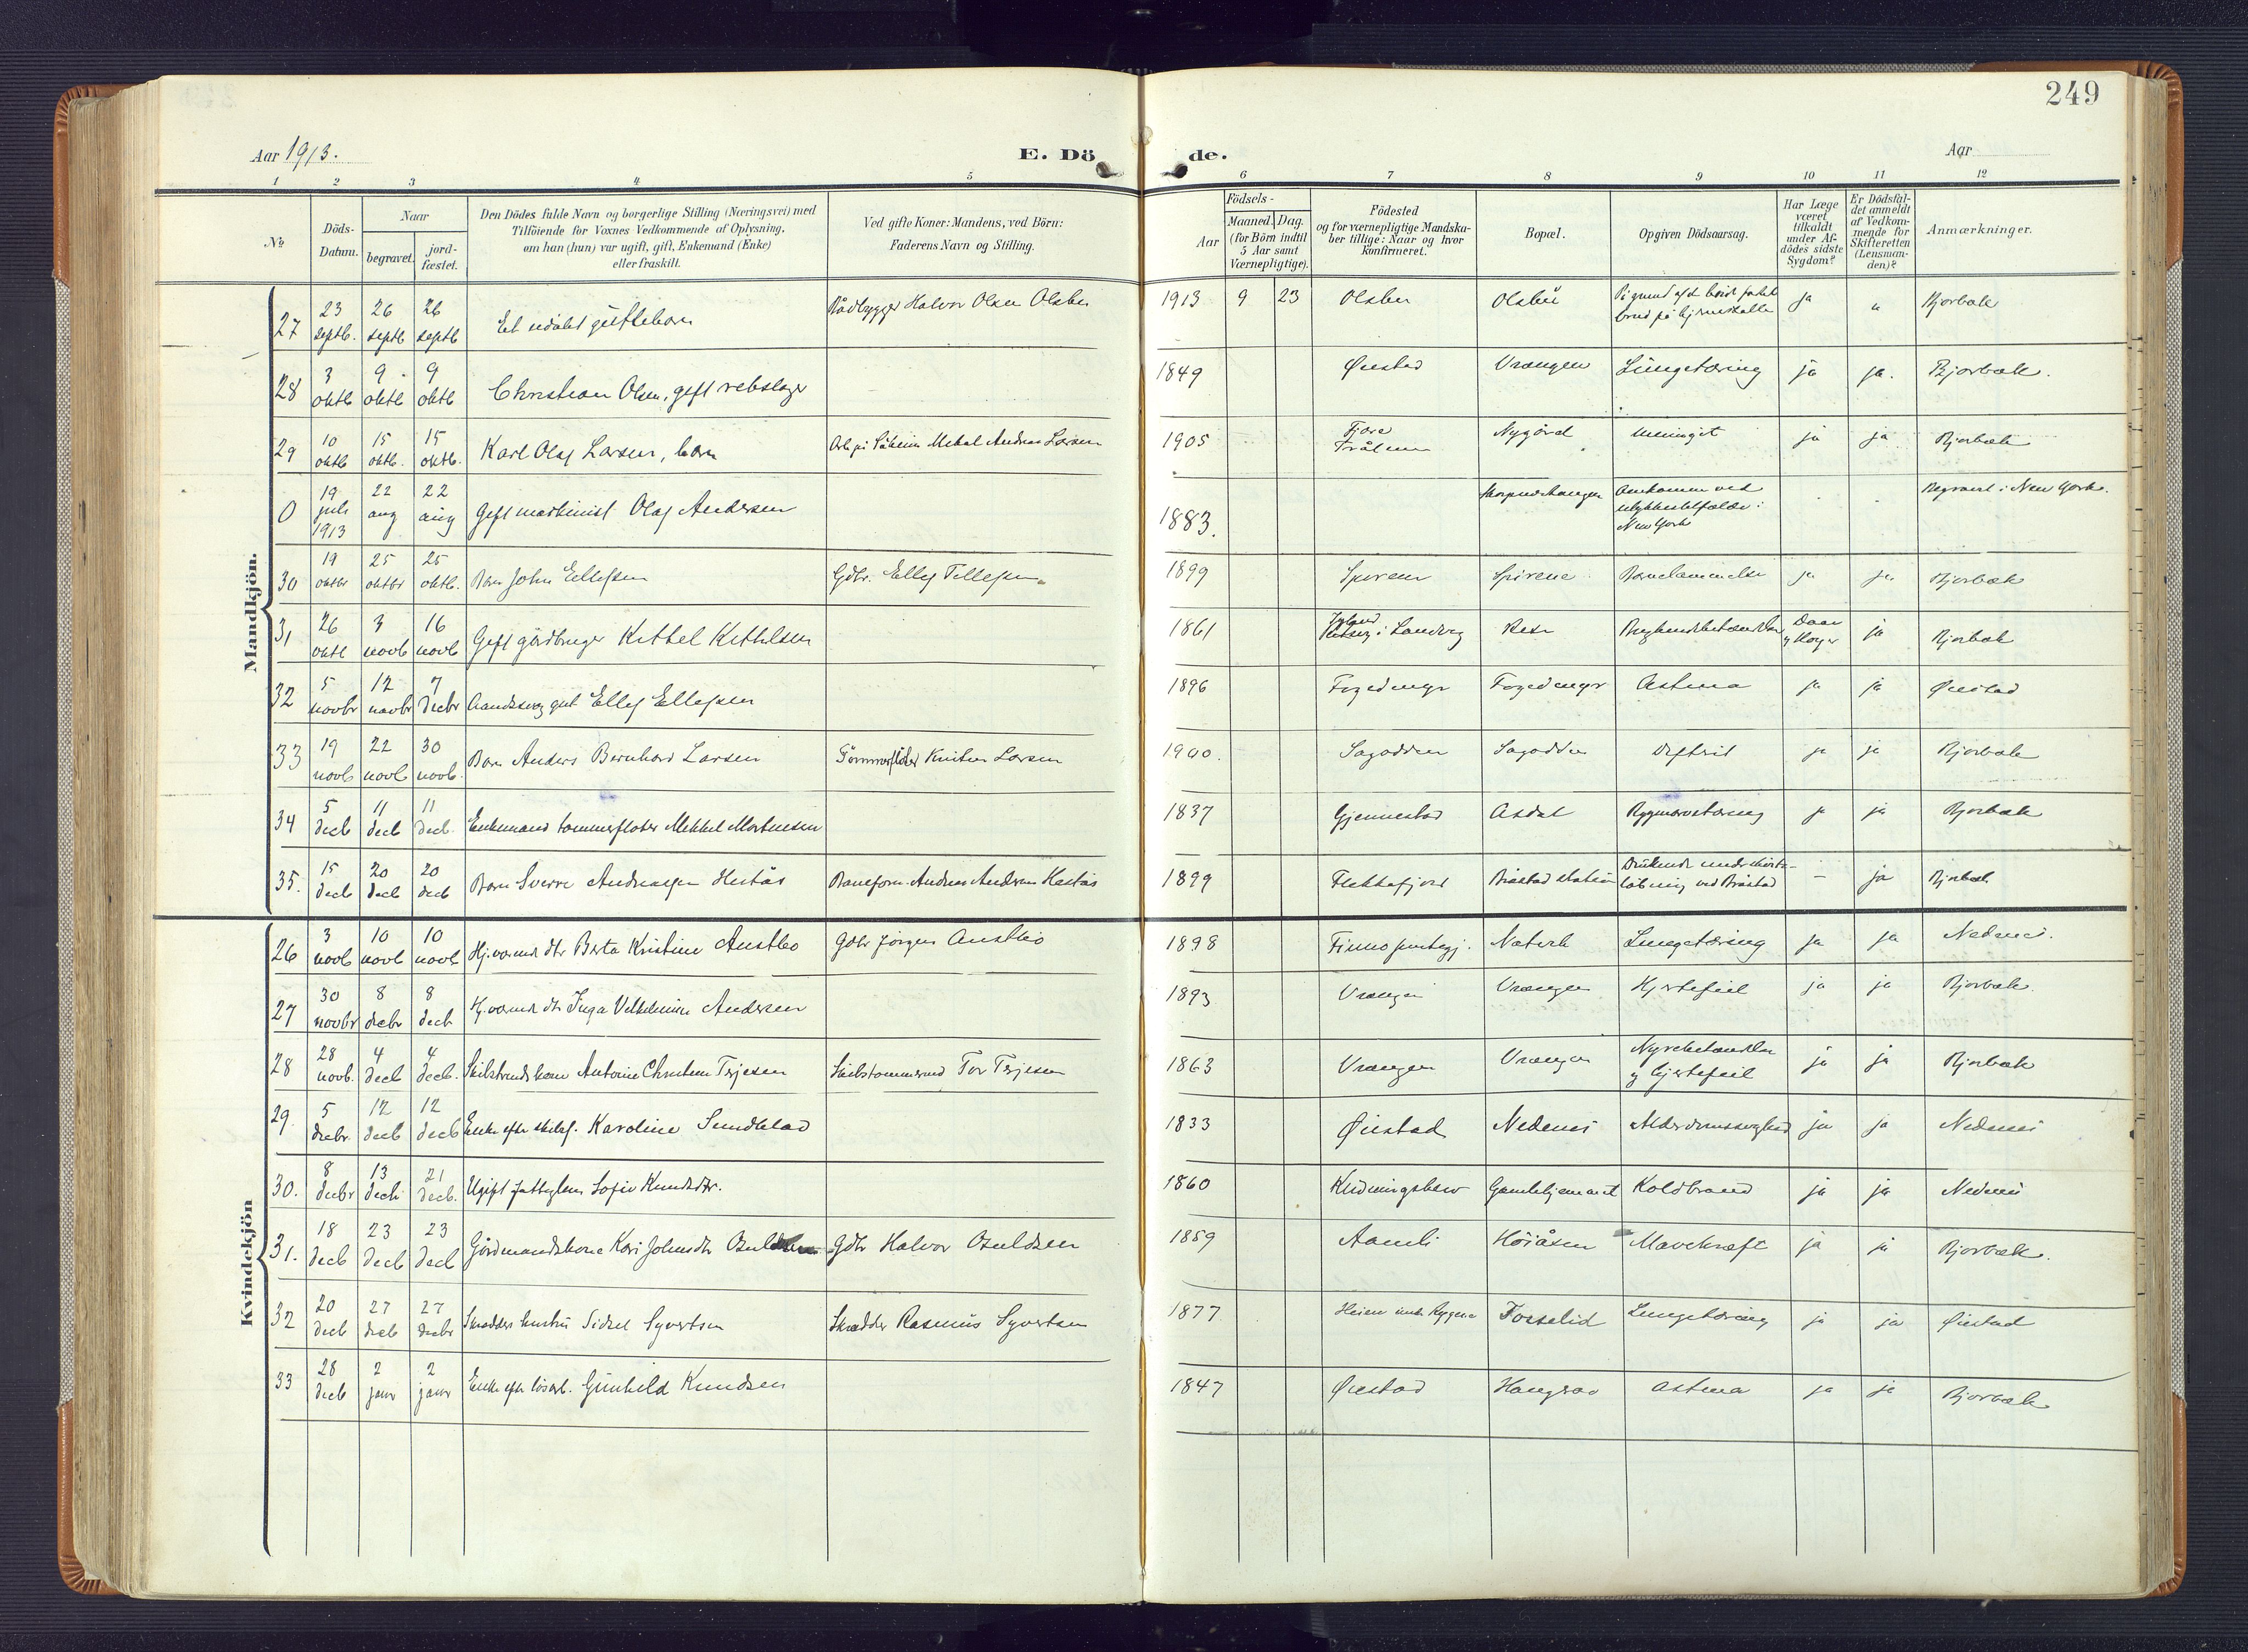 249
Aar 1913.
E. Dö
de.
Aar
1 2 3 4 5 6 7 8 9 10 11 12
No
Döds-
Datum.
Naar
begravet.
jord-
fæstet.
Den Dödes fulde Navn og borgerlige Stilling (Næringsvei) med
Tilföiende for Voxnes Vedkommende af Oplysning,
om han (hun) var ugift, gift, Enkemand (Enke)
eller fraskilt.
Ved gifte Koner: Mandens, ved Börn:
Faderens Navn og Stilling.
Födsels-
Aar
Maaned. Dag.
(for Börn indtil
5 Aar samt
Værnepligtige).
Födested
og for værnepligtige Mandska-
ber tillige: Naar og hvor
konfirmeret.
Bopæl.
Opgiven Dödsaarsag.
Har Læge
været
tilkaldt
under Af-
dödes sidste
Sygdom?
Er Dödsfal-
det anmeldt
af Vedkom-
mende for
Skifteretten
(Lensman-
den)?
Anmærkninger.
Mandkjön.
27 23 septb. 26 septb 26 septb Et udöbt guttebarn Halvor Olsen 1913 9 23 ja " Bjorbæk
28 3 oktb 9 oktb 9 oktb Christian Olsen, gift rebslager 1849 Øiestad Vrangen Lungetæring ja ja. Bjorbæk.
29 10 oktb 15 oktb. 15 oktb. Karl Olaf Larsen, barn Andreas Larsen 1905 Nygård ja ja Bjorbæk
0 19 juli 1913 22 aug 22 aug Gift maskinist Olaf Andersen 1883. Omkommen ved
ulykkestilfælde i
New York Begravet i New York.
30 19 oktbr 25 oktbr 25 oktb. Barn John Ellefsen Gdbr. Ellef Tellefsen 1899 Spirene Spirene Barnelammelse ja ja Bjorbæk
31 26 oktb 3 novb 16 novb Gift gårdbruger Kittel Kittilsen 1861 ja Bjorbæk
32 5 novbr 12 novbr 7 decbr Aandssvag gut Ellef Ellefsen 1896 Fogedmyr Fogedmyr Astma ja ja Øiestad
33 19 novb 22 novb 30 novb. Barn Anders Bernhard Larsen Tömmerflöder Larsen 1900. Sagodden Sagodden Difterit ja ja Bjorbæk
34 5 decb 11 decb 11 decb. Enkemand tömmerfløter Mikkel Mortensen 1837 Gjennestad Asdal Rygmarvstæring ja ja Bjorbæk
35. 15 decb 20 decb 20 decb Barn Sverre Andreassen Hestås Baneform. Andreas Andersen Hestås 1899 Flekkefjord Bråstad station Druknede under sköite-
löbning ved Bråstad - ja Bjorbæk
Kvindekjön
26 3 novb 10 novb 10 novb Hj.værende dtr Berta Kristine Austbø Gdbr Jörgen Austbø 1898 Lungetæring ja ja Nedenes.
27 30 novbr 8 decbr 8 decb Hj.værende dtr Inga Vilhelmine Andersen 1893 Vrangen Vrangen Hjertefeil ja ja Bjorbæk.
28 28 novb. 4 decb 4 decb. Antonie Terjesen Skibstömmermand Tor Terjesen 1863 Vrangen Vrangen Nyrebetændelse
og hjertefeil ja ja Bjorbæk
29. 5 decbr. 12 decb 12 decb Enke efter skibsf. Karoline Sundblad 1833 Øiestad Nedenes Alderdomssvaghed ja ja Nedenes
30. 8 decbr 13 decb 21 decb. Ugift fattiglem Sofie Knudsdtr. 1860 Gamlehjemmet Koldbrand ja ja Nedenes
31. 18 decb 23 decb 23 decb Gårdmandskone Kari Johnsdtr Osuldsen Gdbr Halvor Osuldsen 1859 Aamli Höiåsen Mavekræft ja ja Bjorbæk.
32 20 decb 27 decb 27 decbr Skrædders hustru Sidsel Syvertsen Skrædder Rasmus Syvertsen 1877 Fosselid Lungetæring ja ja Øiestad
33 28 decb 2 janr 2 janr Enke efter lösarb. Gunhild Knudsen 1847 Øiestad Astma ja ja Bjorbæk